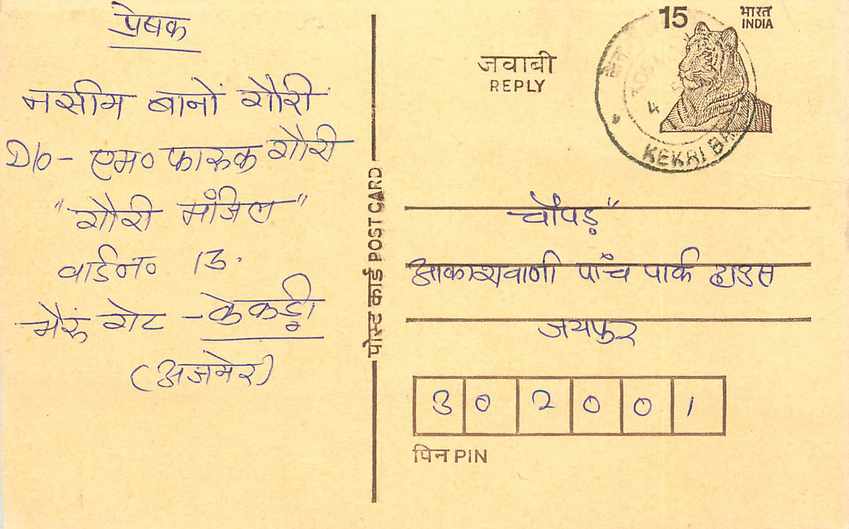 प्रेषक
नसीम बानों गौरी
D/o - एम० फारुक गौरी
"गौरी मंजिल"
वार्ड नं० 13.
भैरूं गेट - केकड़ी
(अजमेर)
पोस्ट कार्ड POST CARD
जवाबी
REPLY
15 भारत
INDIA
KEKRI
चौपड़"
आकाशवाणी पाँच पार्क हाउस
जयपुर
302001
पिन PIN